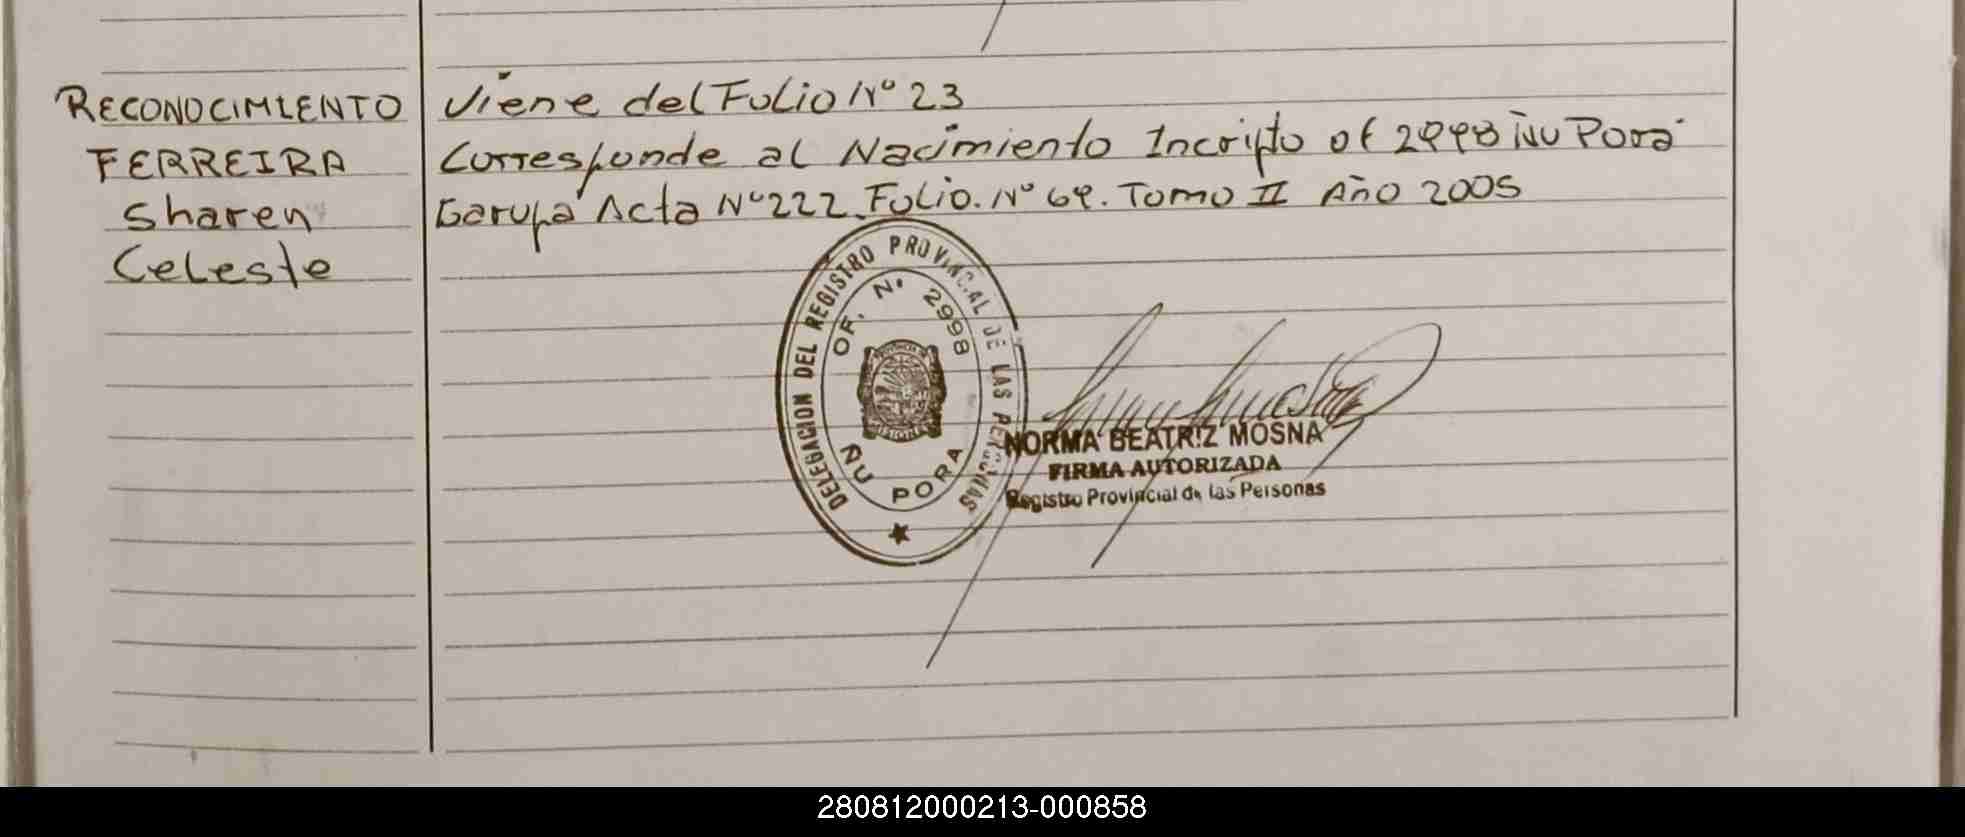 RECONOCIMIENTO
FERREIRA
Sharen
Celeste
Viene del Folio Nº 23
Corresponde al Nacimiento Incripto of 2998 Ñu Porá
Garupá Acta Nº 222. Folio. Nº 69. Tomo II Año 2005
DELEGACION DEL REGISTRO PROVINCIAL DE LAS PERSONAS
OF. Nº 2998
ÑU PORA
NORMA BEATRIZ MOSNA
FIRMA AUTORIZADA
Registro Provincial de las Personas
280812000213-000858